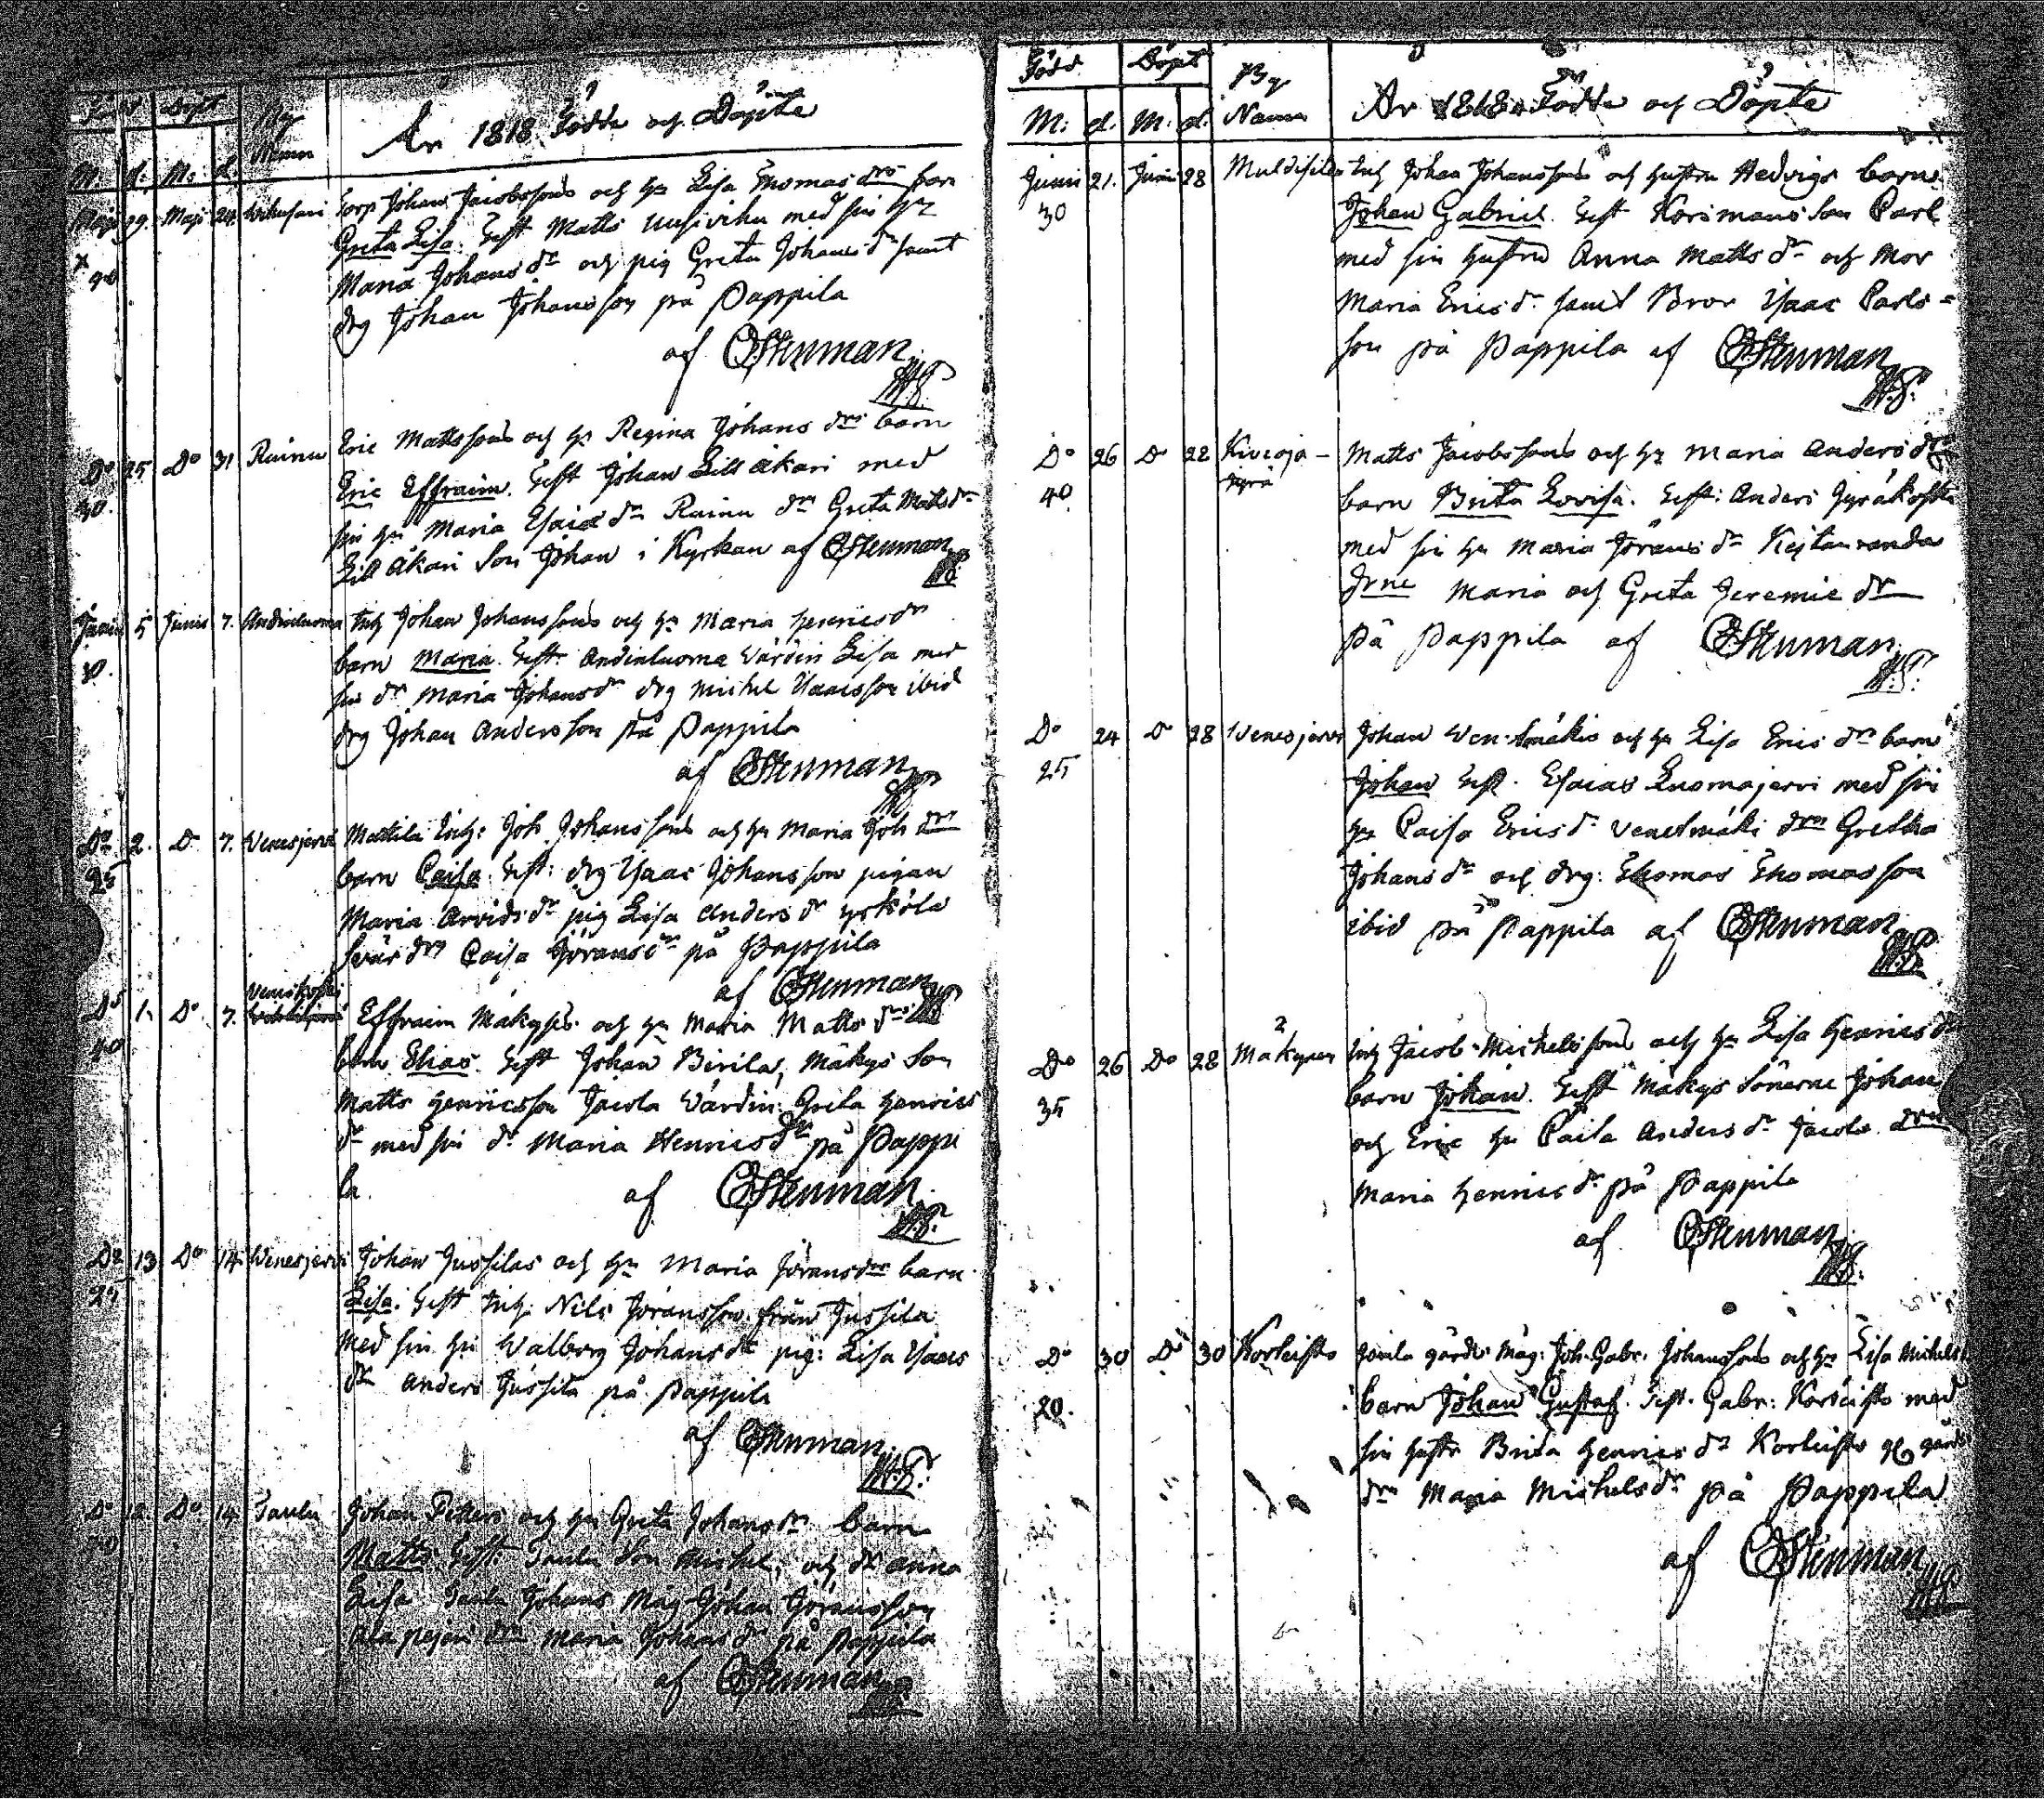 Född Döpt By Namn År 1818 Födde och Döpte
M: d. M: d.
Maji 29. Maji 24. Torp Johan Jacobssons och hu Lisa Thomas drs barn
Greta Lisa. Test Matts Uusiviku med sin hu
40 Maria Johans dr och pig Greta Johans dr samt
drg Johan Johansson på Pappila
af CStenman
Do 25 Do 31 Rainu Eric Mattssons och hu Regina Johans drs barn
30. Eric Effraim. Test Johan Lill Akari med
sin hu Maria Esaiæ dr Rainu dr Greta Matts dr
Lill Akari Son Johan i Kyrkan af CStenman
Junii 5 Junii 7. Andialuoma Inh Johan Johanssons och hu Maria Henrics dr
barn Maria. Test: Andialuoma Värdin Lisa med
sin dr Maria Johans dr drg Michel Isaacsson ibid
drg Johan Andersson på Pappila
af CStenman
Do 2. Do 7. Venesjervi Mattila Inh: Joh Johanssons och hu Maria Joh drs
25 barn Caisa. Test: drg Isaac Johansson pigan
Maria Arvids dr pig Lisa Anders dr
Svär drn Caisa Jörans dr på Pappila
af CStenman
Do 1. Do 7. Effraim Mäkysis och hu Maria Matts drs
40 barn Elias. Test Johan Birila, Mäkys Son
Matts Henricsson Jacola Värdin: Greta Henrics
dr med sin dr Maria Henrics dr på Pappi
la. af CStenman
Do 13 Do 14. Wenesjervi Johan Jussilas och hu Maria Jörans drs barn
Lisa. Test Inh. Nils Jöransson från Jussila
med sin hu Walborg Johans dr pig: Lisa Isaacs
dr Anders Jussila på Pappila
af CStenman
Do Do 14. Taulu Johan Petters och hu Greta Johans drs barn
Matts Test: Taulu Son Michel, och dr Anna
Lisa Taulu Johans Måg Johan Jöransson
drn Maria Johans dr på Pappila
af CStenman
Född Döpt By År 1818. Födde och Döpte
M: d. M: d. Namn
Junii 21. Junii 28 Inh Johan Johanssons och hustru Hedvigs barn
30 Johan Gabriel. Test Korsmans Son Carl
med sin hustru Anna Matts dr och Mor
Maria Erics dr samt Bror Isaac Carls-
son på Pappila af CStenman
Do 26 Do 28 Kivioja- Matts Jacobssons och hu Maria Anders drs
Jyrä
40 barn Brita Lovisa. Test: Anders Jyräkoski
med sin hu Maria Jörans dr Keitauranda
drne Maria och Greta Jeremiæ dr
På Pappila af CStenman
Do 24 Do 28 Wenesjervi Johan Venesmäkis och hu Lisa Erics drs barn
25 Johan Test. Esaias Luomajervi med sin
hu Caisa Erics dr Venesmäki drn Gretha
Johans dr och drg: Thomas Thomasson
ibid på Pappila af CStenman
Do 26 Do 28 Mäkynen Inh Jacob Michelssons och hu Lisa Henrics drs
35 barn Johan. Test Mäkys Sönerne Johan
och Eric hu Caisa Anders dr Jacola drn
Maria Henrics dr på Pappila
af CStenman
Do 30 Do 30 Korteisto Jouila gårds Måg: Joh. Gabr. Johanssons och hu Lisa Michels
20. barn Johan Gustaf. Test. Gabr: Korteisto med
sin hustr Brita Henrics dr Korteisto
drn Maria Michels dr på Pappila
af CStenman